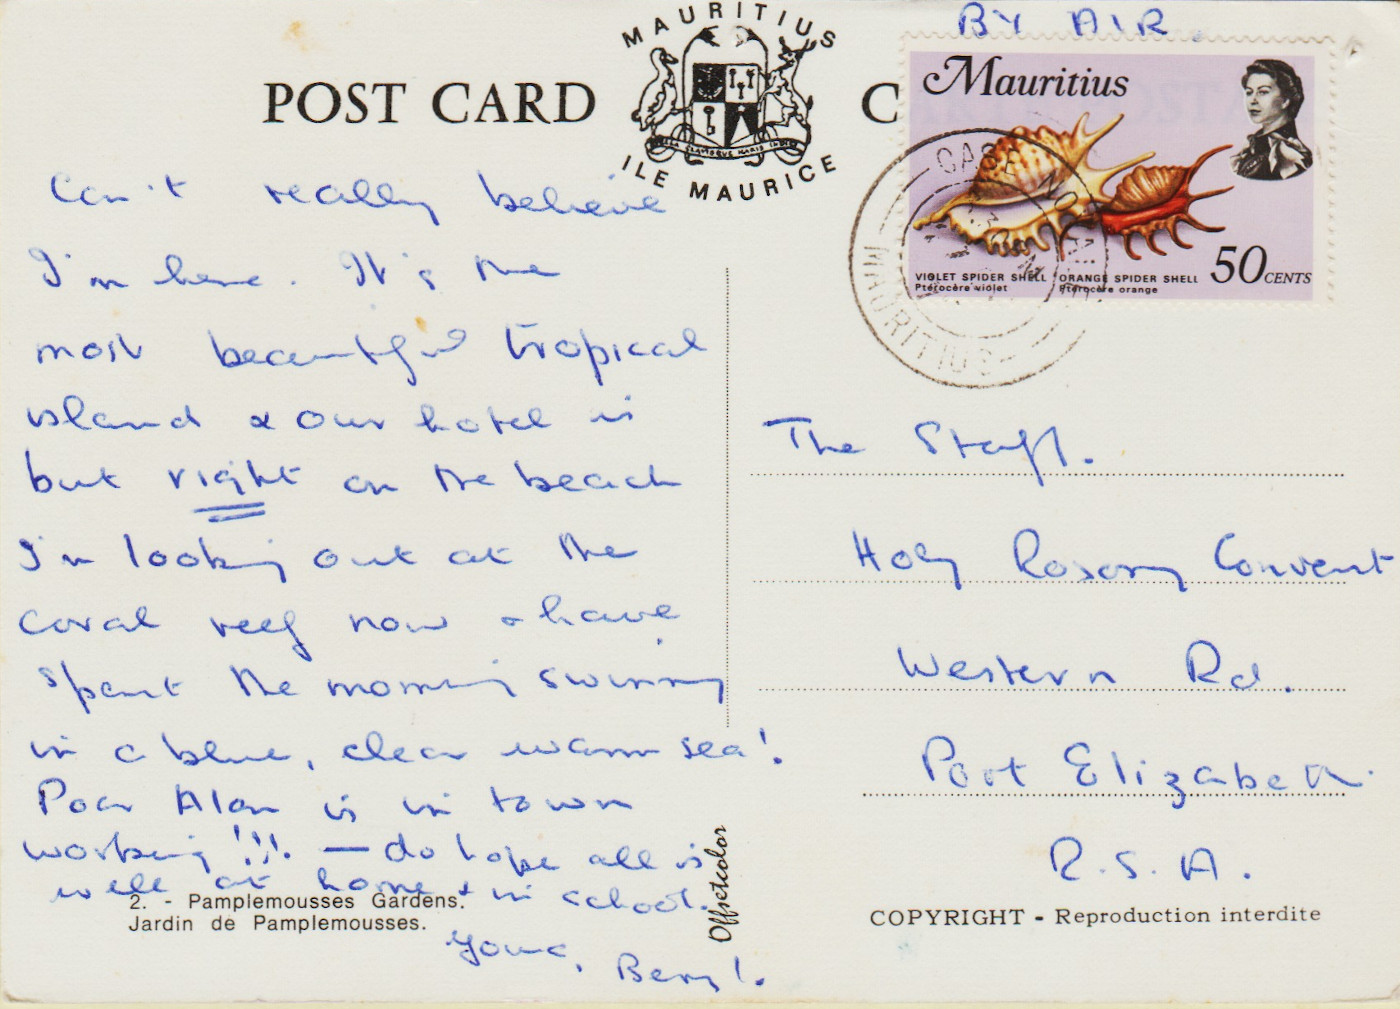 BY AIR.
MAURITIUS
POST CARD
ILE MAURICE
Mauritius
VIOLET SPIDER SHELL
Ptérocère violet
ORANGE SPIDER SHELL
Ptérocère orange
50 CENTS
MAURITIUS
Can't really believe
I'm here. It's the
most beautiful tropical
island & our hotel is
but right on the beach
I'm looking out at the
coral reef now & have
spent the morning swimming
in a blue, clear warm sea!
Poor Alan is in town
working!!! — do hope all is
well at home & in school.
Yours,
Beryl.
The Staff.
Holy Rosary Convent
Western Rd.
Port Elizabeth.
R.S.A.
2. - Pamplemousses Gardens.
Jardin de Pamplemousses.
Offsetcolor
COPYRIGHT - Reproduction interdite